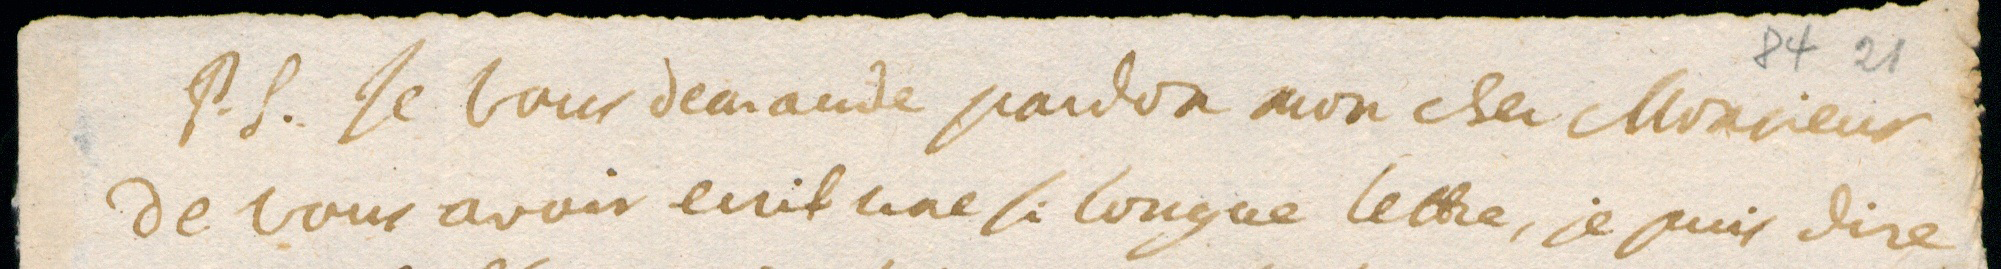 84 21
P.S. Je vous demande pardon mon cher Monsieur
de vous avoir ecrit une si longue lettre, je puis dire